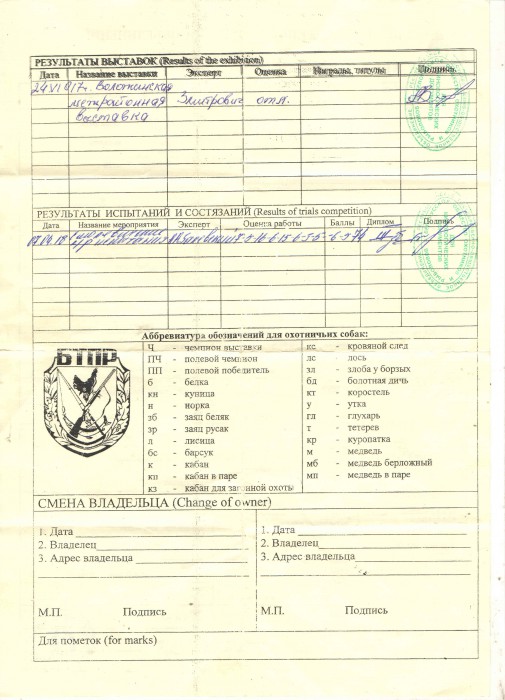 РЕЗУЛЬТАТЫ ВЫСТАВОК (Results of the exhibition)
Дата Название выставки Эксперт Оценка Награды, титулы Подпись
Воложинская
межрайонная отл.
выставка
РЕЗУЛЬТАТЫ ИСПЫТАНИЙ И СОСТЯЗАНИЙ (Results of trials competition)
Дата Название мероприятия Эксперт Оценка работы Баллы Диплом Подпись
Аббревиатура обозначений для охотничьих собак:
БТПР
Ч - чемпион выставки
ПЧ - полевой чемпион
ПП - полевой победитель
б - белка
кн - куница
н - норка
зб - заяц беляк
зр - заяц русак
л - лисица
бс - барсук
к - кабан
кп - кабан в паре
кз - кабан для загонной охоты
кс - кровяной след
лс - лось
зл - злоба у борзых
бд - болотная дичь
кт - коростель
у - утка
гл - глухарь
т - тетерев
кр - куропатка
м - медведь
мб - медведь берложный
мп - медведь в паре
СМЕНА ВЛАДЕЛЬЦА (Change of owner)
1. Дата
2. Владелец
3. Адрес владельца
М.П. Подпись
1. Дата
2. Владелец
3. Адрес владельца
М.П. Подпись
Для пометок (for marks)